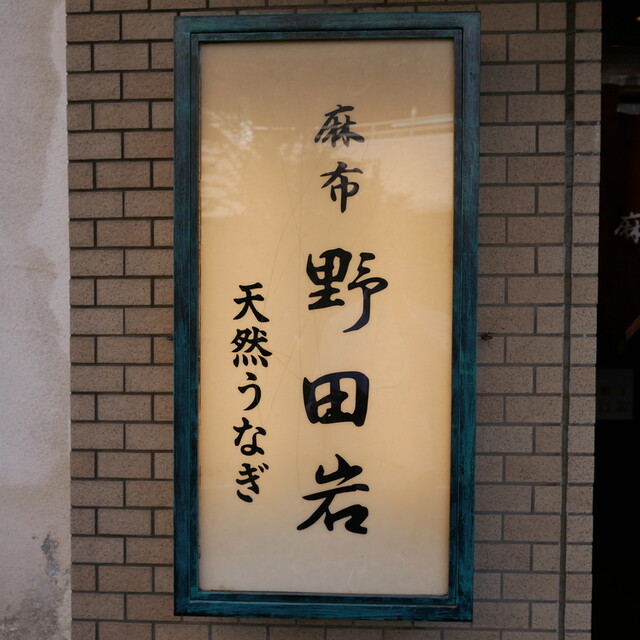 麻布 野田岩
天然うなぎ
麻